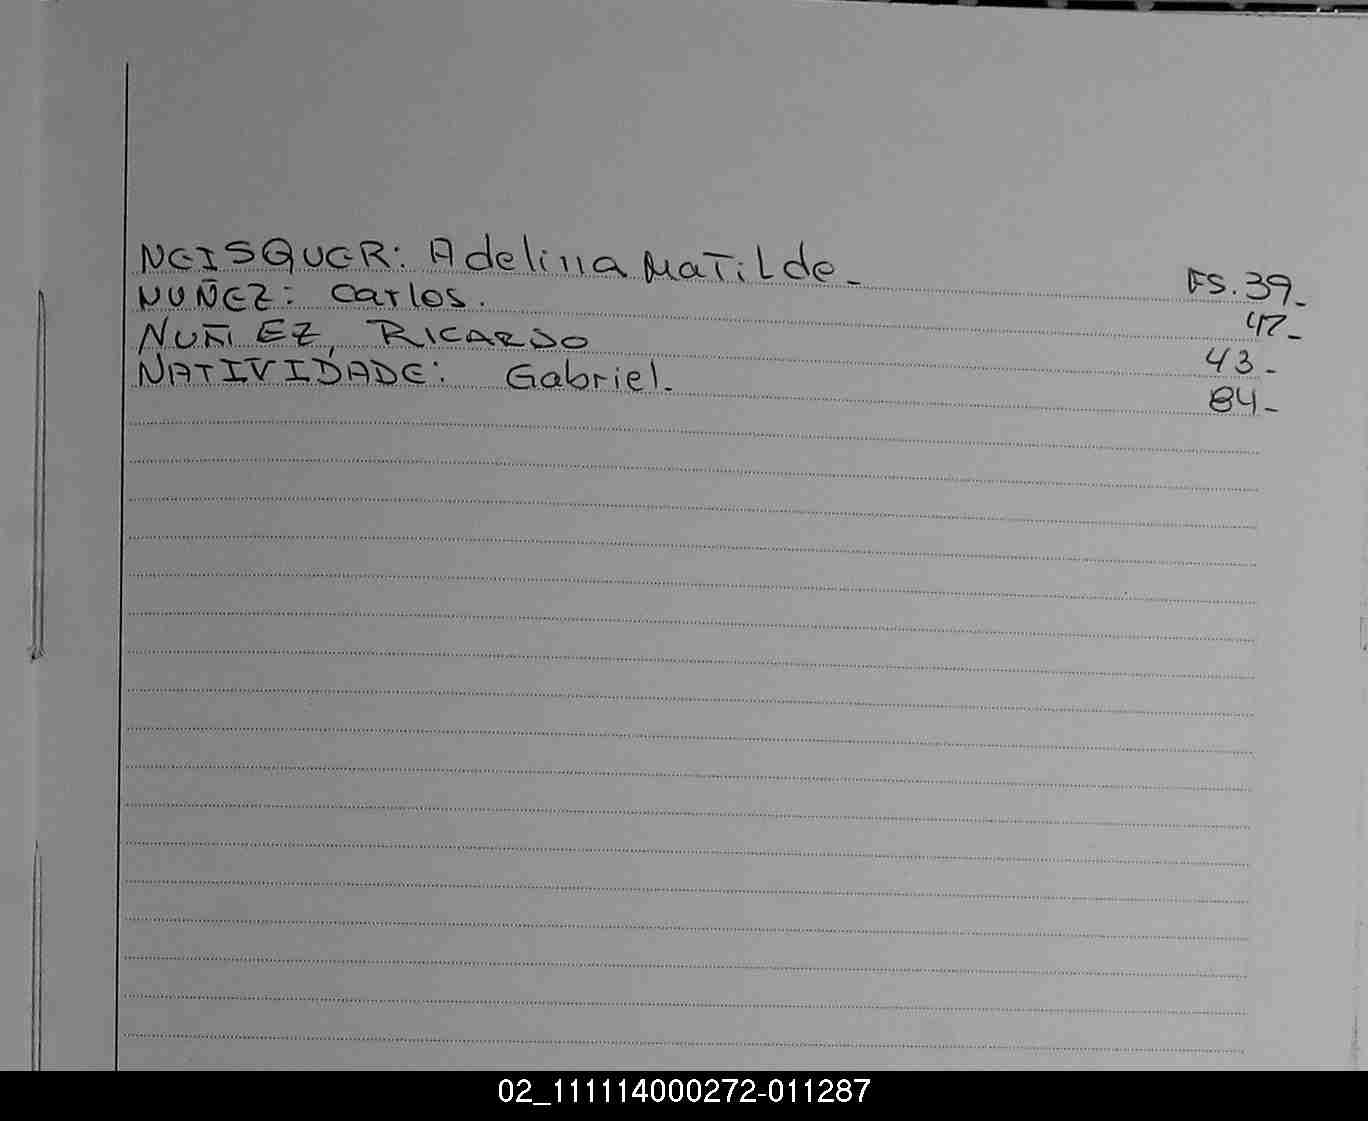 NEISQUER: Adelina Matilde_ FS. 39_
NUÑEZ: Carlos. 47_
NUÑEZ, RICARDO 43_
NATIVIDADE: Gabriel. 84_
02_111114000272-011287